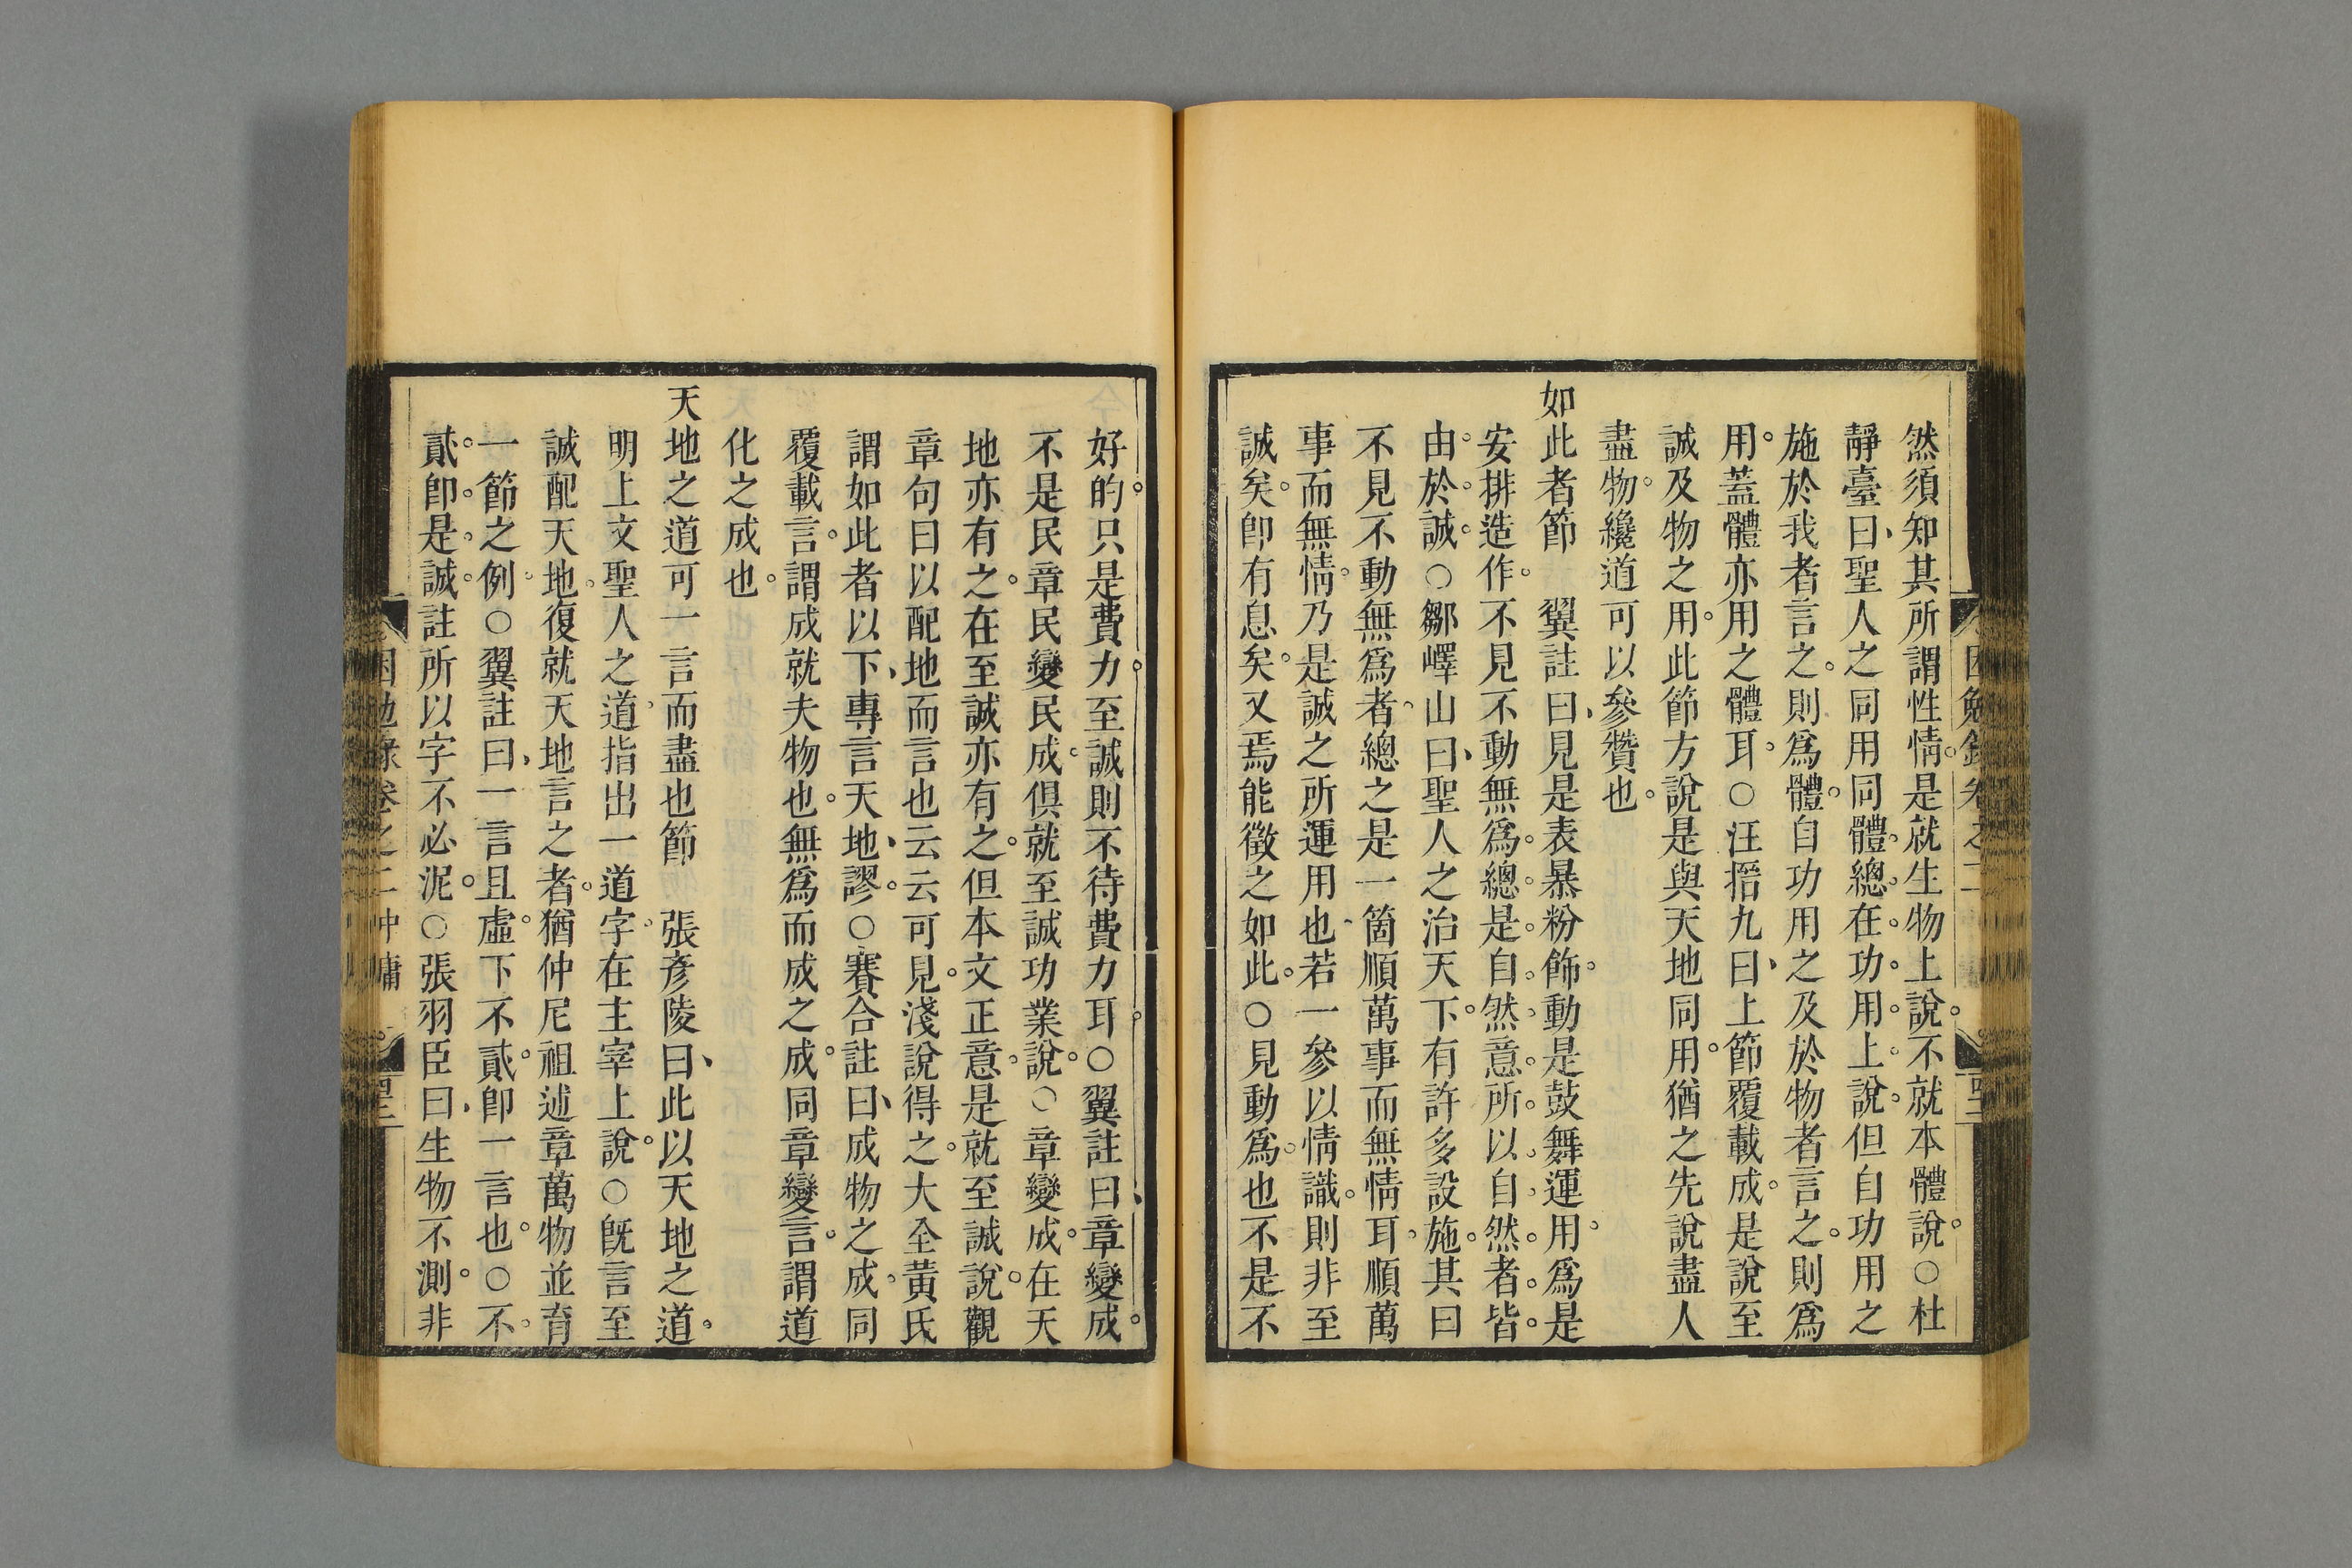 然須知其所謂性情是就生物上說不就本體說○杜
靜臺曰聖人之同用同體總在功用上說但自功用之
施於我者言之則爲體自功用之及於物者言之則爲
用蓋體亦用之體耳○汪㨗九曰上節覆載成是說至
誠及物之用此節方說是與天地同用猶之先說盡人
盡物纔道可以參贊也
如此者節 翼註曰見是表暴粉飾動是鼓舞運用爲是
安排造作不見不動無爲總是自然意所以自然者皆
由於誠○鄒嶧山曰聖人之治天下有許多設施其曰
不見不動無爲者總之是一箇順萬事而無情耳順萬
事而無情乃是誠之所運用也若一參以情識則非至
誠矣卽有息矣又焉能徵之如此○見動爲也不是不
好的只是費力至誠則不待費力耳○翼註曰章變成
不是民章民變民成俱就至誠功業說○章變成在天
地亦有之在至誠亦有之但本文正意是就至誠說觀
章句曰以配地而言也云云可見淺說得之大全黃氏
謂如此者以下專言天地謬○賽合註曰成物之成同
覆載言謂成就夫物也無爲而成之成同章變言謂道
化之成也
天地之道可一言而盡也節 張彥陵曰此以天地之道
明上文聖人之道指出一道字在主宰上說○旣言至
誠配天地復就天地言之者猶仲尼祖述章萬物並育
一節之例○翼註曰一言且虛下不貳卽一言也○不
貳卽是誠註所以字不必泥○張羽臣曰生物不測非
困勉錄卷之二中庸